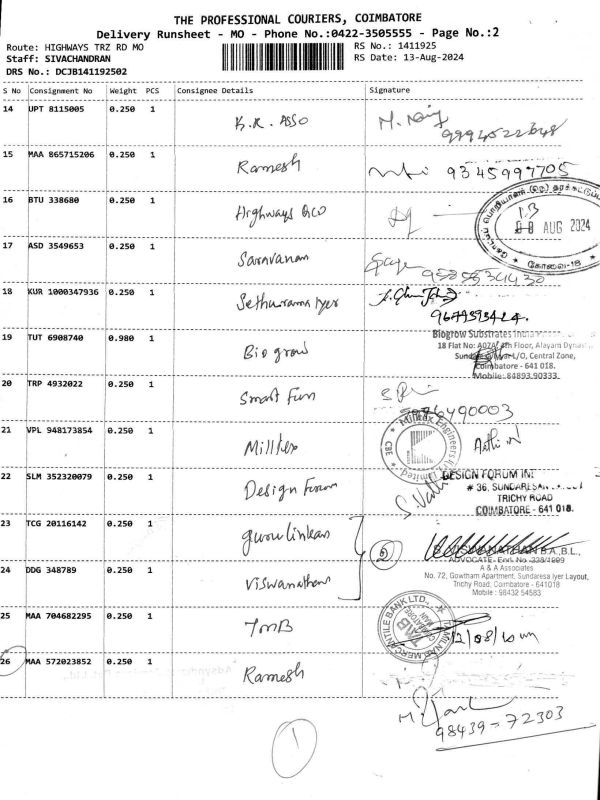 THE PROFESSIONAL COURIERS, COIMBATORE
Delivery Runsheet - MO - Phone No.:0422-3505555 - Page No.:2
Route: HIGHWAYS TRZ RD MO
RS No.: 1411925
Staff: SIVACHANDRAN
RS Date: 13-Aug-2024
DRS No.: DCJB141192502
S No Consignment No Weight PCS Consignee Details Signature
14 UPT 8115005 0.250 1 K.R. ASSO
15 MAA 865715206 0.250 1 Ramesh 9345997705
16 BTU 338680 0.250 1 Highways
AUG 2024
கோவை-18
17 ASD 3549653 0.250 1 Saravanan
18 KUR 1000347936 0.250 1 Sethurama Iyer
19 TUT 6908740 0.980 1 Bio grow
Biogrow Substrates
18 Flat No: 4th Floor, Alayam
L/O, Central Zone,
Coimbatore - 641 018.
Mobile: 84893 90333
20 TRP 4932022 0.250 1 Smart Fun
21 VPL 948173854 0.250 1 Milltex
Milltex Engineers
Limited
CBE
22 SLM 352320079 0.250 1 Design Forum
DESIGN FORUM
# 36, SUNDARESAN
TRICHY ROAD
COIMBATORE - 641 018.
23 TCG 20116142 0.250 1
2
24 DDG 348789 0.250 1 Viswanathan
VISWANATHAN B.A.,B.L.,
ADVOCATE
A & A Associates
No. 72, Gowtham Apartment, Sundaresa Iyer Layout,
Trichy Road, Coimbatore - 641018
Mobile : 98432 54583
25 MAA 704682295 0.250 1 TMB
TAMILNAD MERCANTILE BANK LTD.,
TMB
COIMBATORE
MAIN
26 MAA 572023852 0.250 1 Ramesh
98439-72303
1